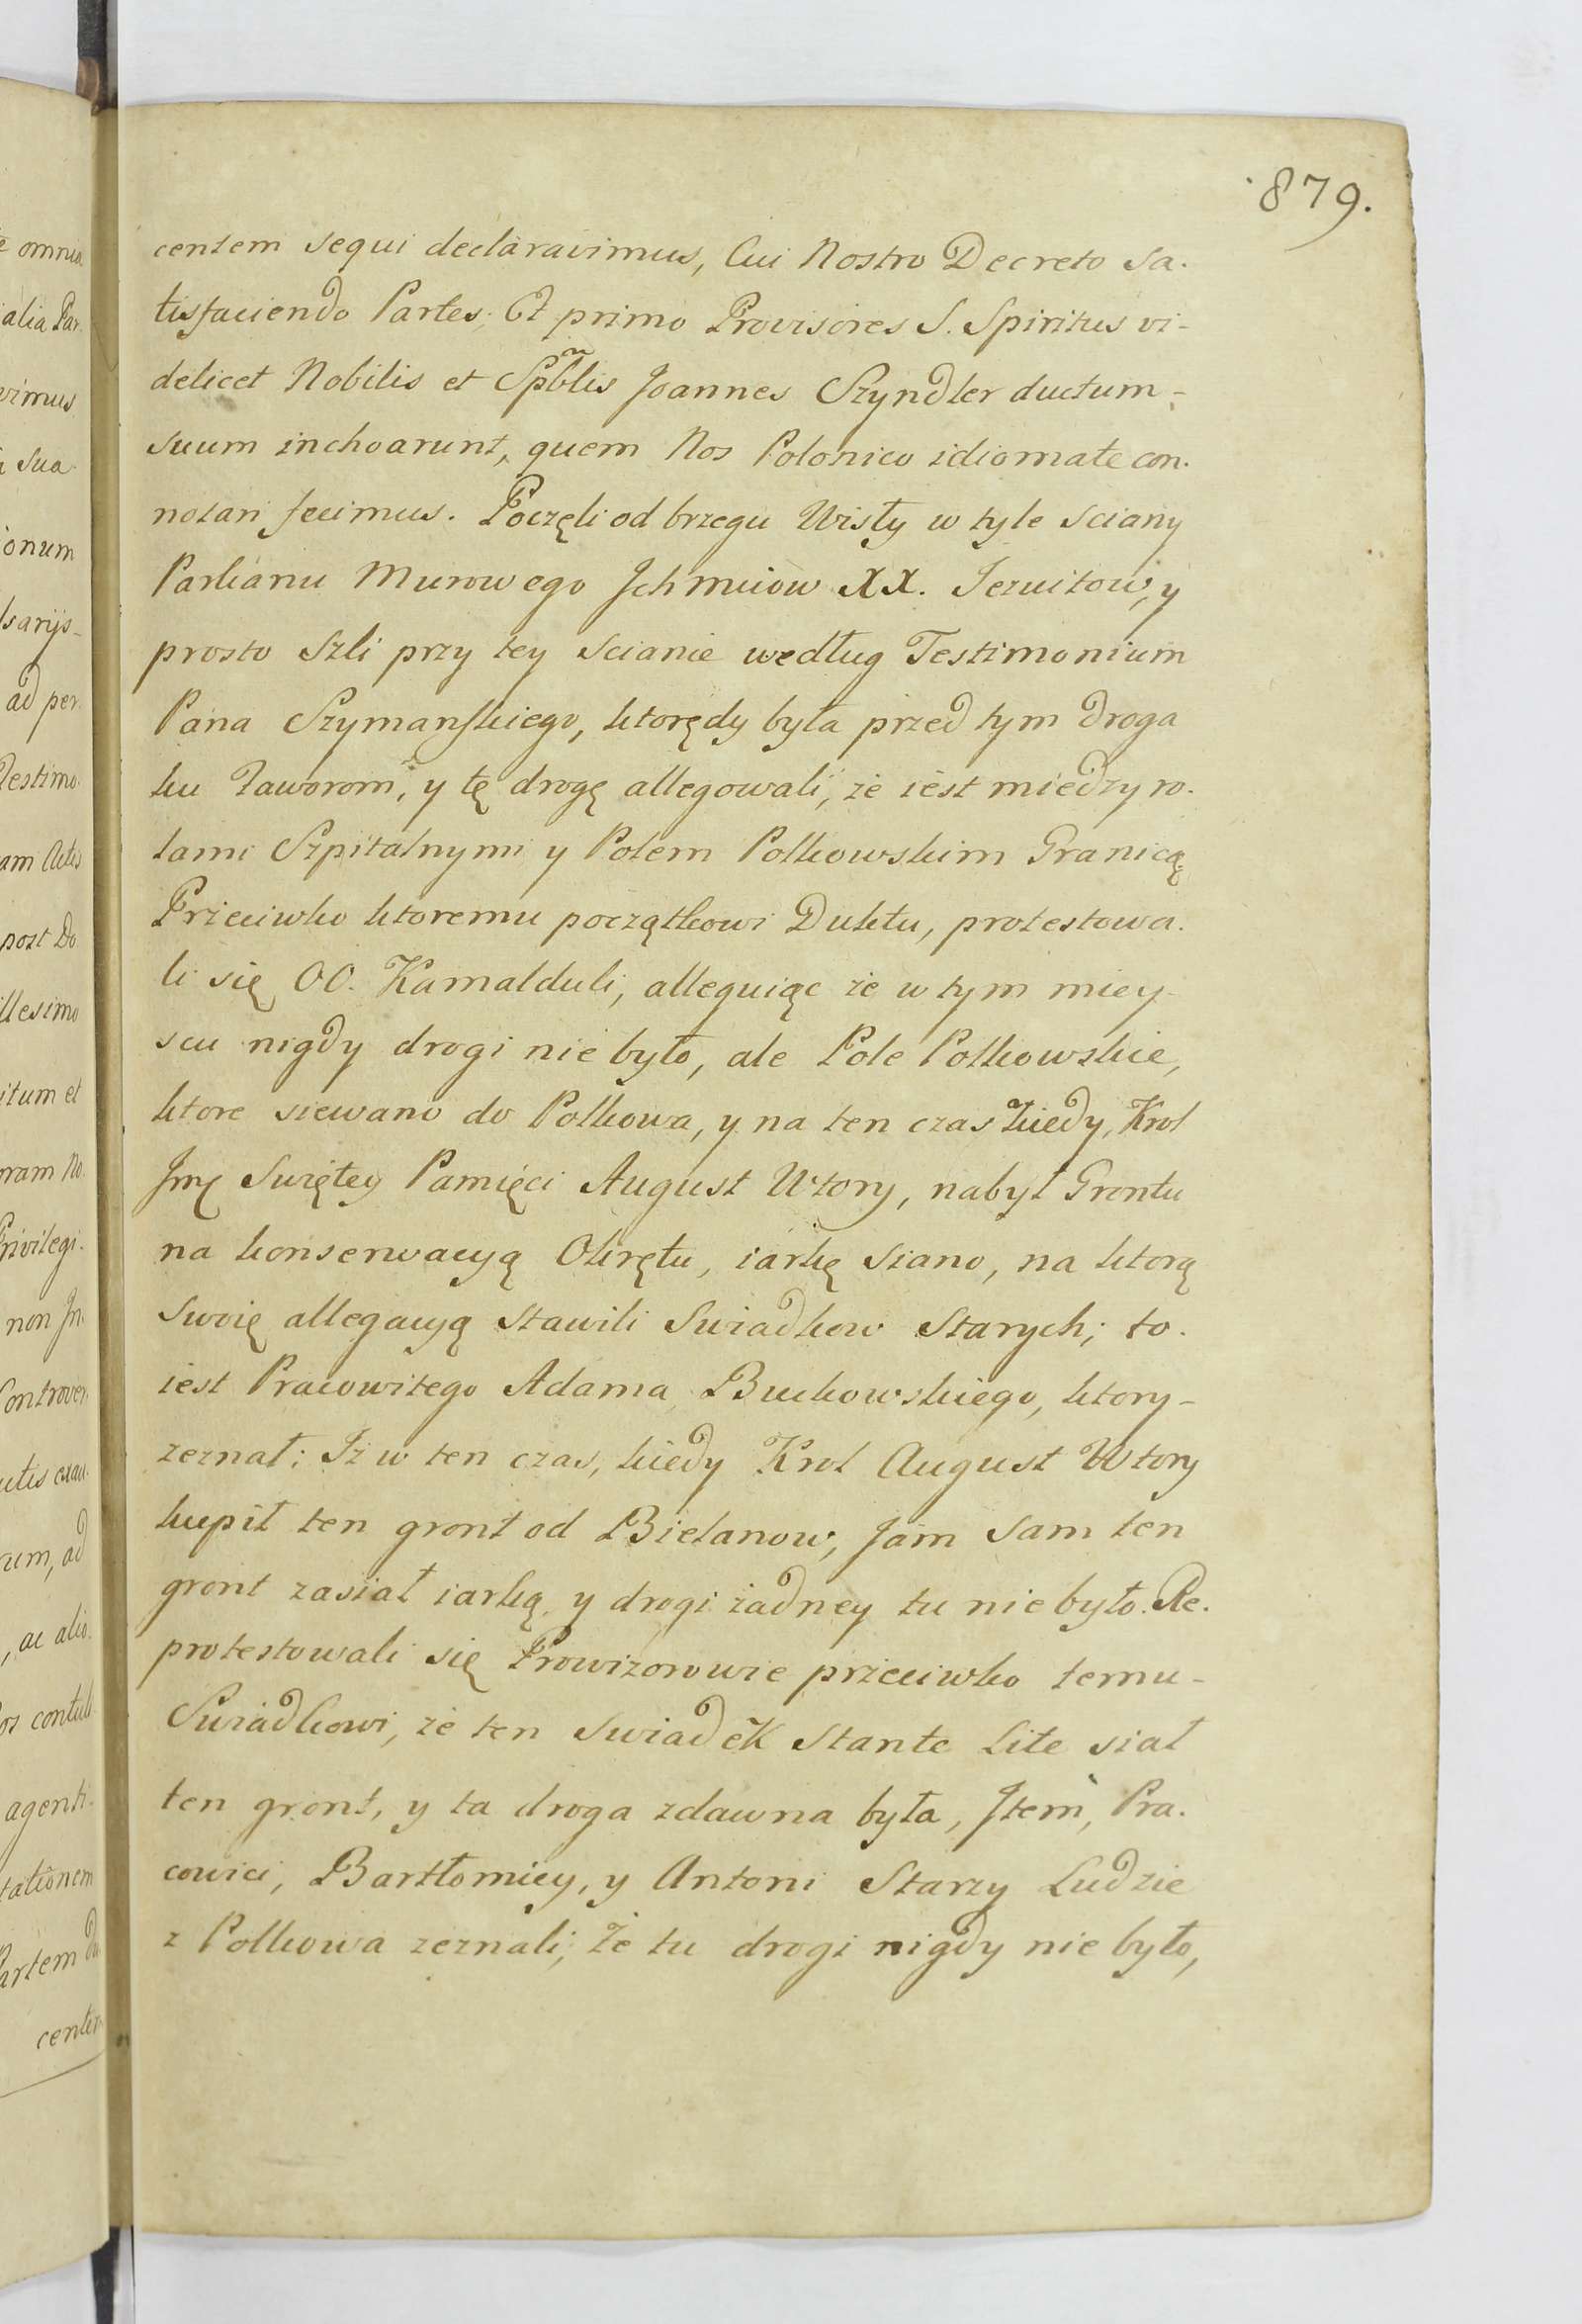 879.
centem sequi declaravimus, Cui Nostro Decreto sa-
tisfaciendo Partes; Et primo Provisores S. Spiritus vi-
delicet Nobilis et Spblis Joannes Szyndler ductum-
suum inchoarunt, quem Nos Polonico idiomate con-
notari fecimus. Poczęli od brzegu Wisły w tyle sciany
Parkanu Murowego Jchmciow XX. Jezuitow, y
prosto szli przy tey scianie według Testimonium
Pana Szymanskiego, ktorędy była przed tym droga
ku Jaworom, y tę drogę allegowali, że iest miedzy ro-
lami Szpitalnymi y Polem Polkowskim Granicą
Przeciwko ktoremu początkowi Duktu, protestowa-
li się OO. Kamalduli, alleguiąc że w tym miey-
scu nigdy drogi nie było, ale Pole Polkowskie,
ktore siewano do Polkowa, y na ten czas kiedy, Krol
Jmę Swiętey Pamięci August Wtory, nabył Grontu
na konserwacyą Okrętu, iarkę siano, na ktorą
swoię allegacyą stawili Swiadkow starych; to-
iest Pracowitego Adama Bukowskiego, ktory-
zeznał; Iz w ten czas, kiedy Krol August Wtory
kupił ten gront od Bielanow, Jam sam ten
gront zasiał iarką y drogi żadney tu nie było. Re-
protestowali się Prowizorowie przeciwko temu-
Swiadkowi, że ten swiadek stante Lite siał
ten gront, y ta droga zdawna była, Jtem, Pra-
cowici, Bartłomiey, y Antoni Starzy Ludzie
z Polkowa zeznali, że tu drogi nigdy nie było,
e omnia
alia Par-
vimus
sua
onum
sarijs-
ad per-
Testimo-
am Actis
post Do
llesimo
itum et
ram No-
Privilegi-
non Jn-
Controver-
um, ad
, ac alio-
os contuli
agenti-
tationem
artem du
centem